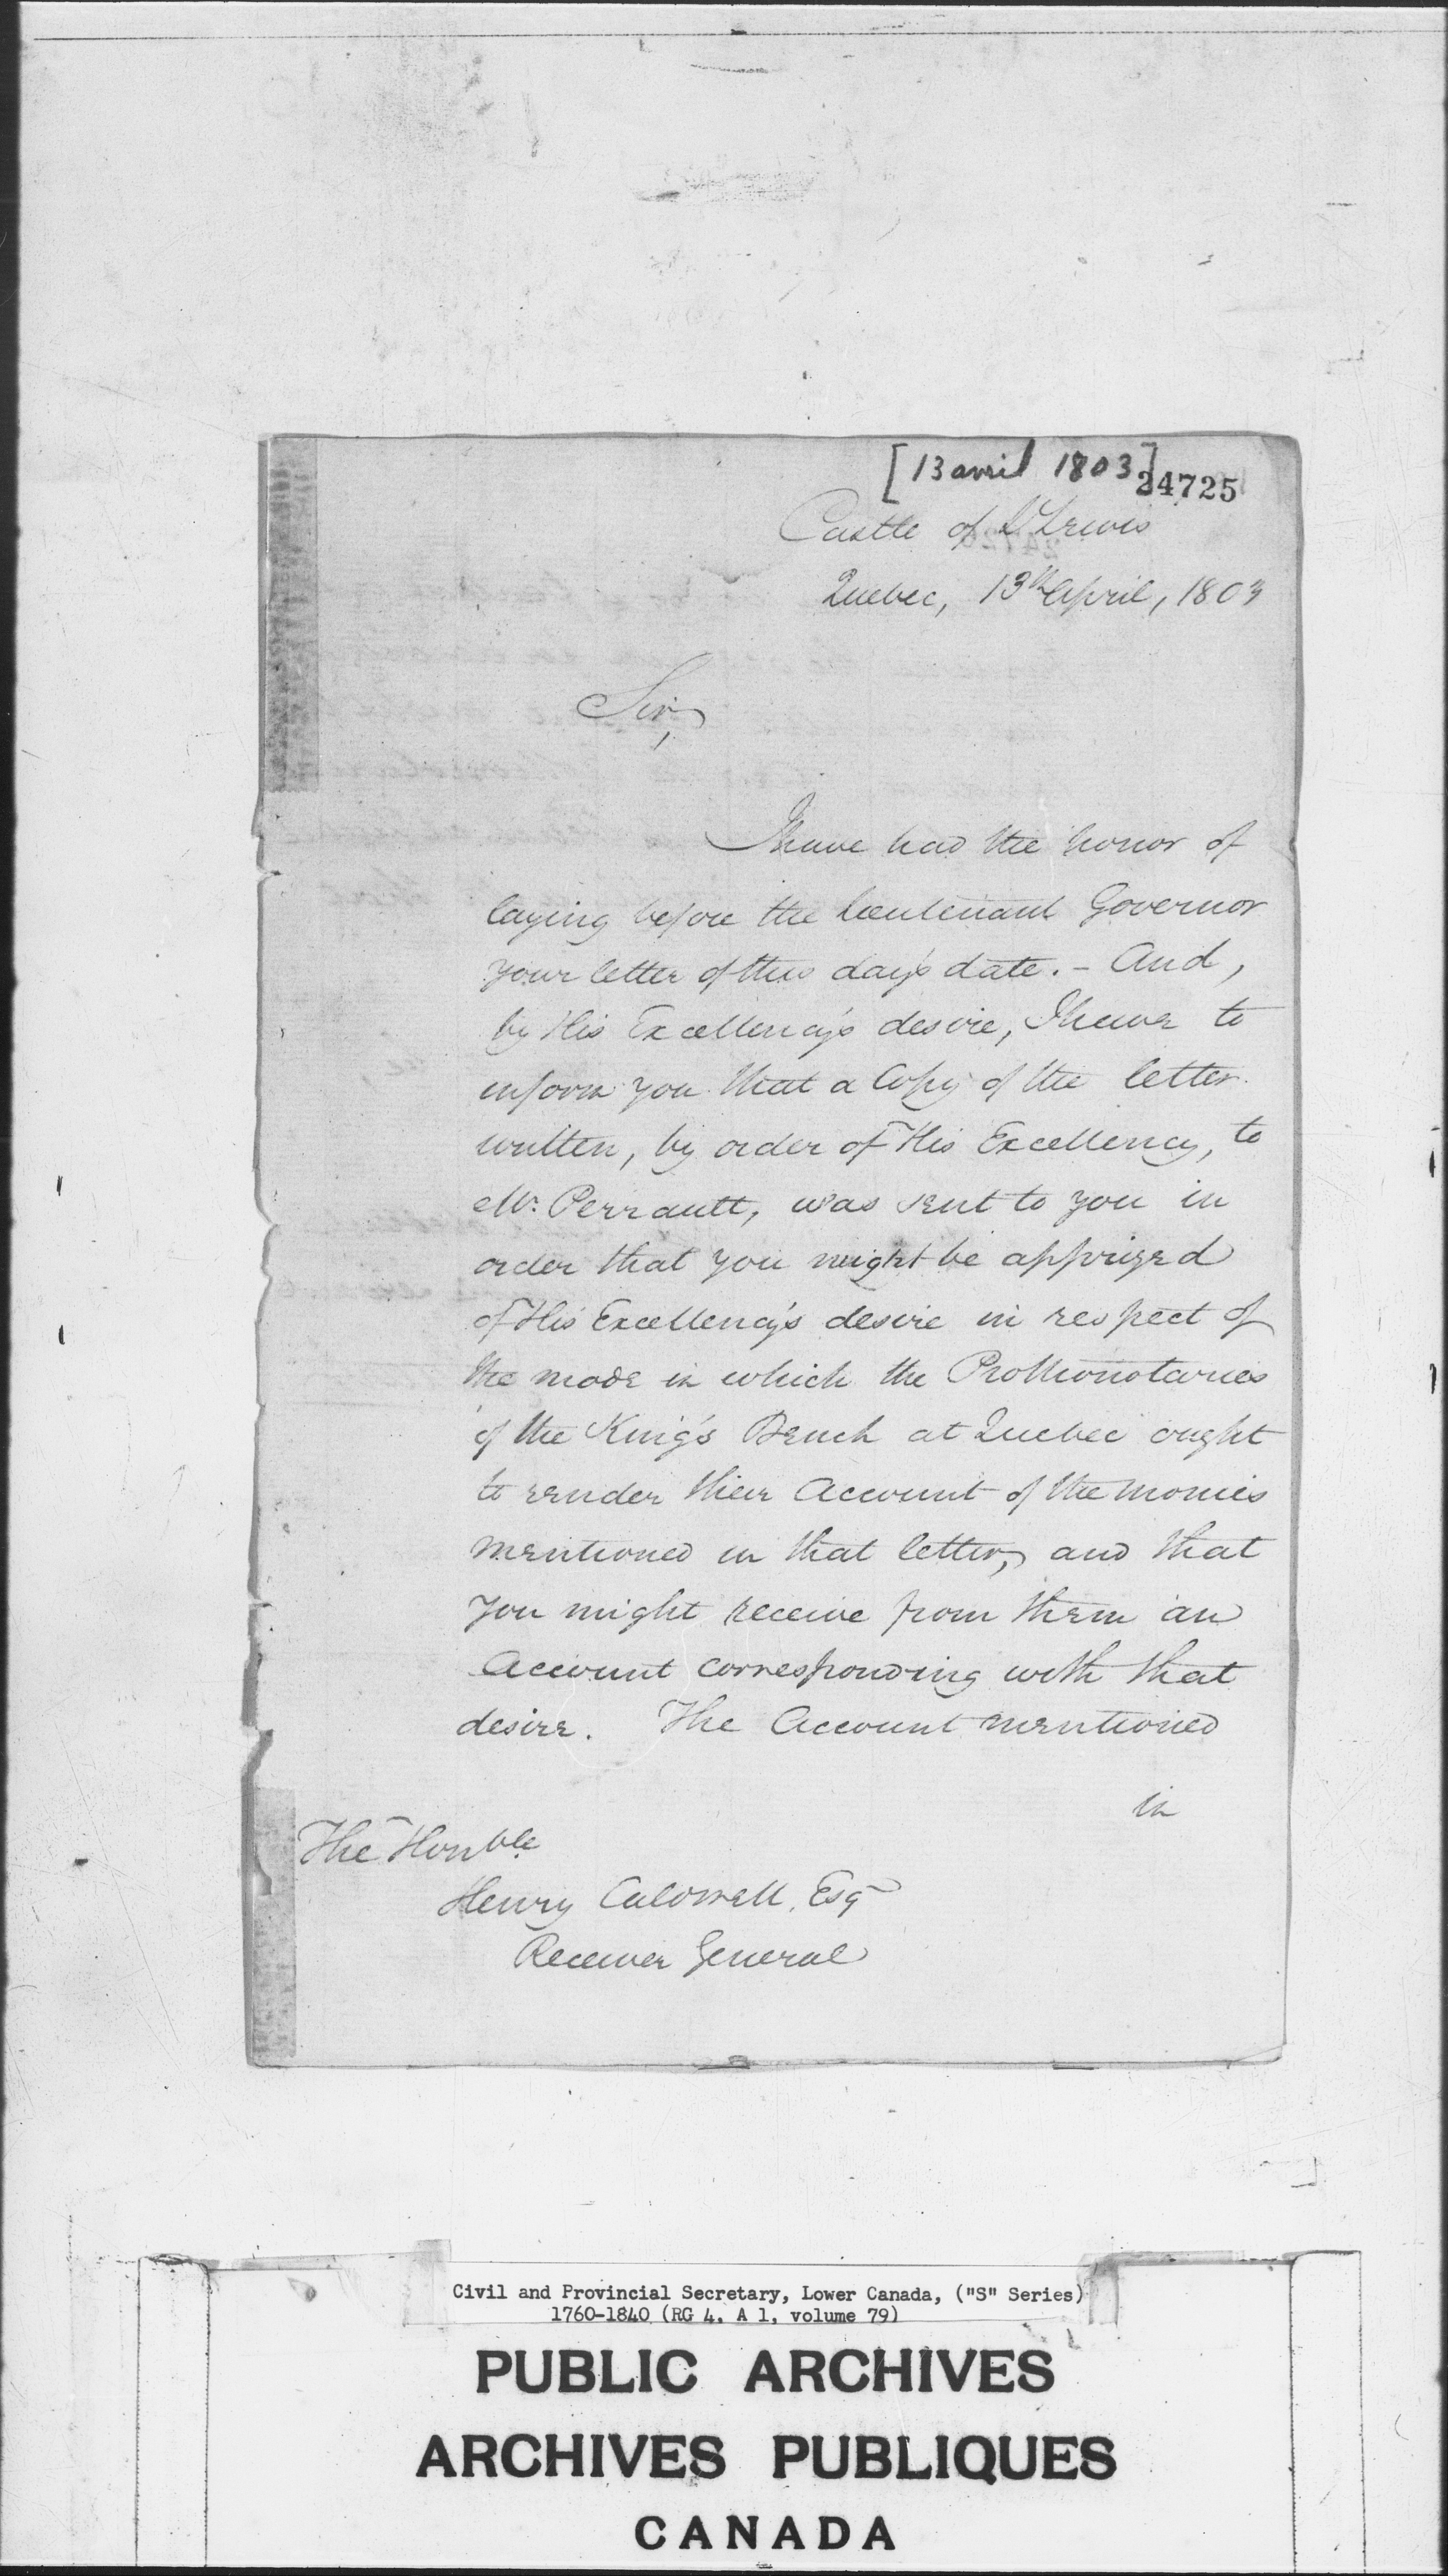 [13 avril 1803]
24725
Castle of St Lewis
Quebec, 13th April, 1803
Sir,
I have had the honor of
laying before the Lieutenant Governor
your letter of this day's date. - And,
by His Excellency's desire, I have to
inform you that a Copy of the letter
written, by order of His Excellency, to
Mr. Perrault, was sent to you in
order that you might be apprized
of His Excellency's desire in respect of
the mode in which the Prothonotaries
of the King's Bench at Quebec ought
to render their Account of the monies
mentioned in that letter, and that
you might receive from them an
Account corresponding with that
desire. The Account mentioned
in
The Honble
Henry Caldwell, Esqr
Receiver General
Civil and Provincial Secretary, Lower Canada, ("S" Series)
1760-1840 (RG 4, A 1, volume 79)
PUBLIC ARCHIVES
ARCHIVES PUBLIQUES
CANADA